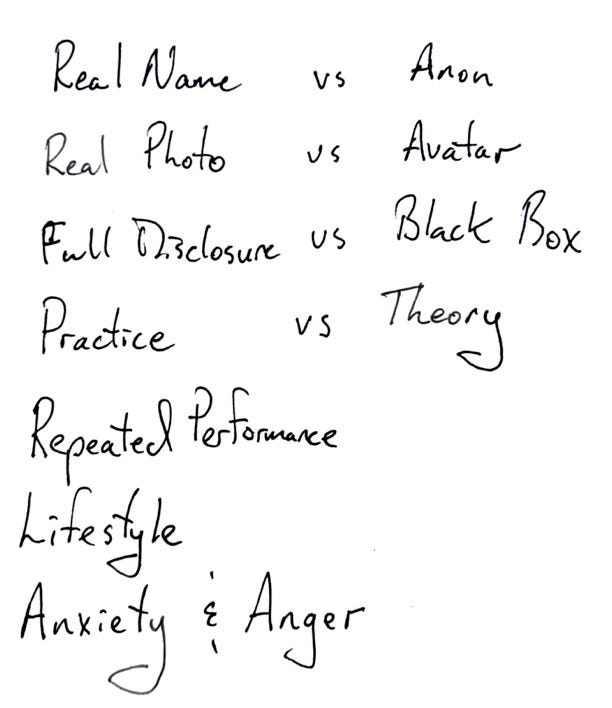 Real Name vs Anon
Real Photo vs Avatar
Full Disclosure vs Black Box
Practice vs Theory
Repeated Performance
Lifestyle
Anxiety & Anger